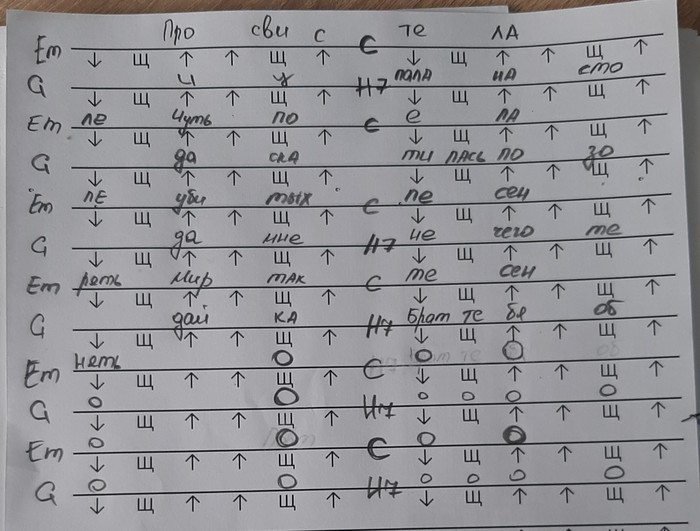 Em Про сви С С те ЛА
↓ Щ ↑ ↑ Щ ↑ ↓ Щ ↑ ↑ Щ ↑
G И у H7 пала на сто
↓ Щ ↑ ↑ Щ ↑ ↓ Щ ↑ ↑ Щ ↑
Em ле Чуть по C е ла
↓ Щ ↑ ↑ Щ ↑ ↓ Щ ↑ ↑ Щ ↑
G да ска ти лась по зо
↓ Щ ↑ ↑ Щ ↑ ↓ Щ ↑ ↑ Щ ↑
Em ле уби тых C пе сен
↓ Щ ↑ ↑ Щ ↑ ↓ Щ ↑ ↑ Щ ↑
G да мне H7 не чего те
↓ Щ ↑ ↑ Щ ↑ ↓ Щ ↑ ↑ Щ ↑
Em рять Мир так C те сен
↓ Щ ↑ ↑ Щ ↑ ↓ Щ ↑ ↑ Щ ↑
G дай ка H7 Брат те бя об
↓ Щ ↑ ↑ Щ ↑ ↓ Щ ↑ ↑ Щ ↑
Em нять O C O O
↓ Щ ↑ ↑ Щ ↑ ↓ Щ ↑ ↑ Щ ↑
G O O H7 O O O O
↓ Щ ↑ ↑ Щ ↑ ↓ Щ ↑ ↑ Щ ↑
Em O O C O O
↓ Щ ↑ ↑ Щ ↑ ↓ Щ ↑ ↑ Щ ↑
G O O H7 O O O O
↓ Щ ↑ ↑ Щ ↑ ↓ Щ ↑ ↑ Щ ↑